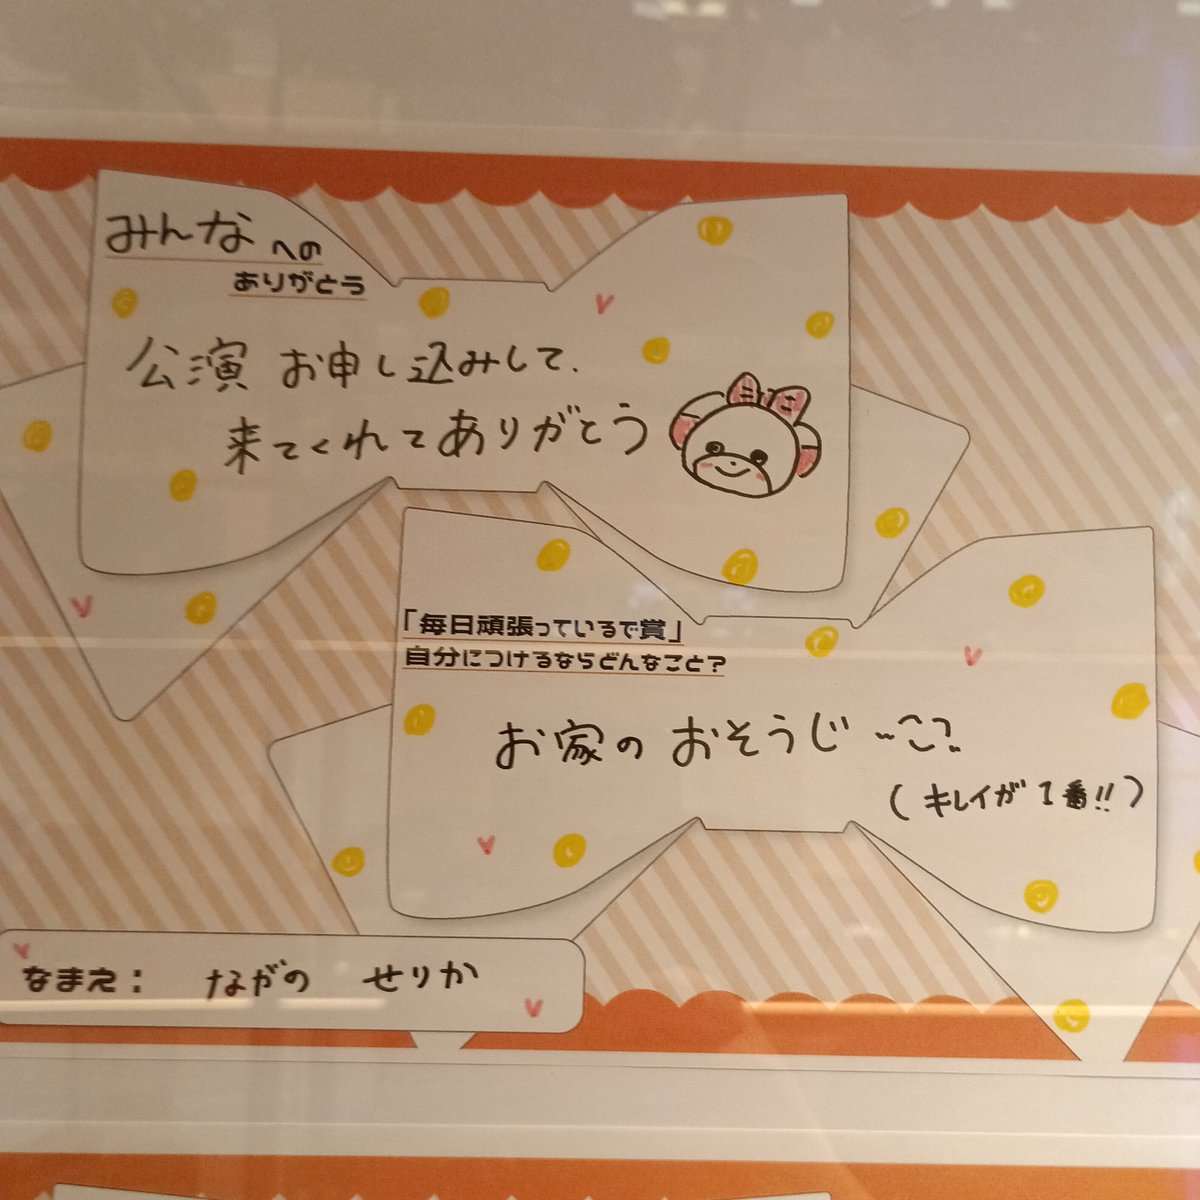 みんなへの
ありがとう
公演 お申し込みして.
来てくれてありがとう
「毎日頑張っているで賞」
自分につけるならどんなこと？
お家の おそうじ
(キレイが1番!!)
なまえ： ながの せりか